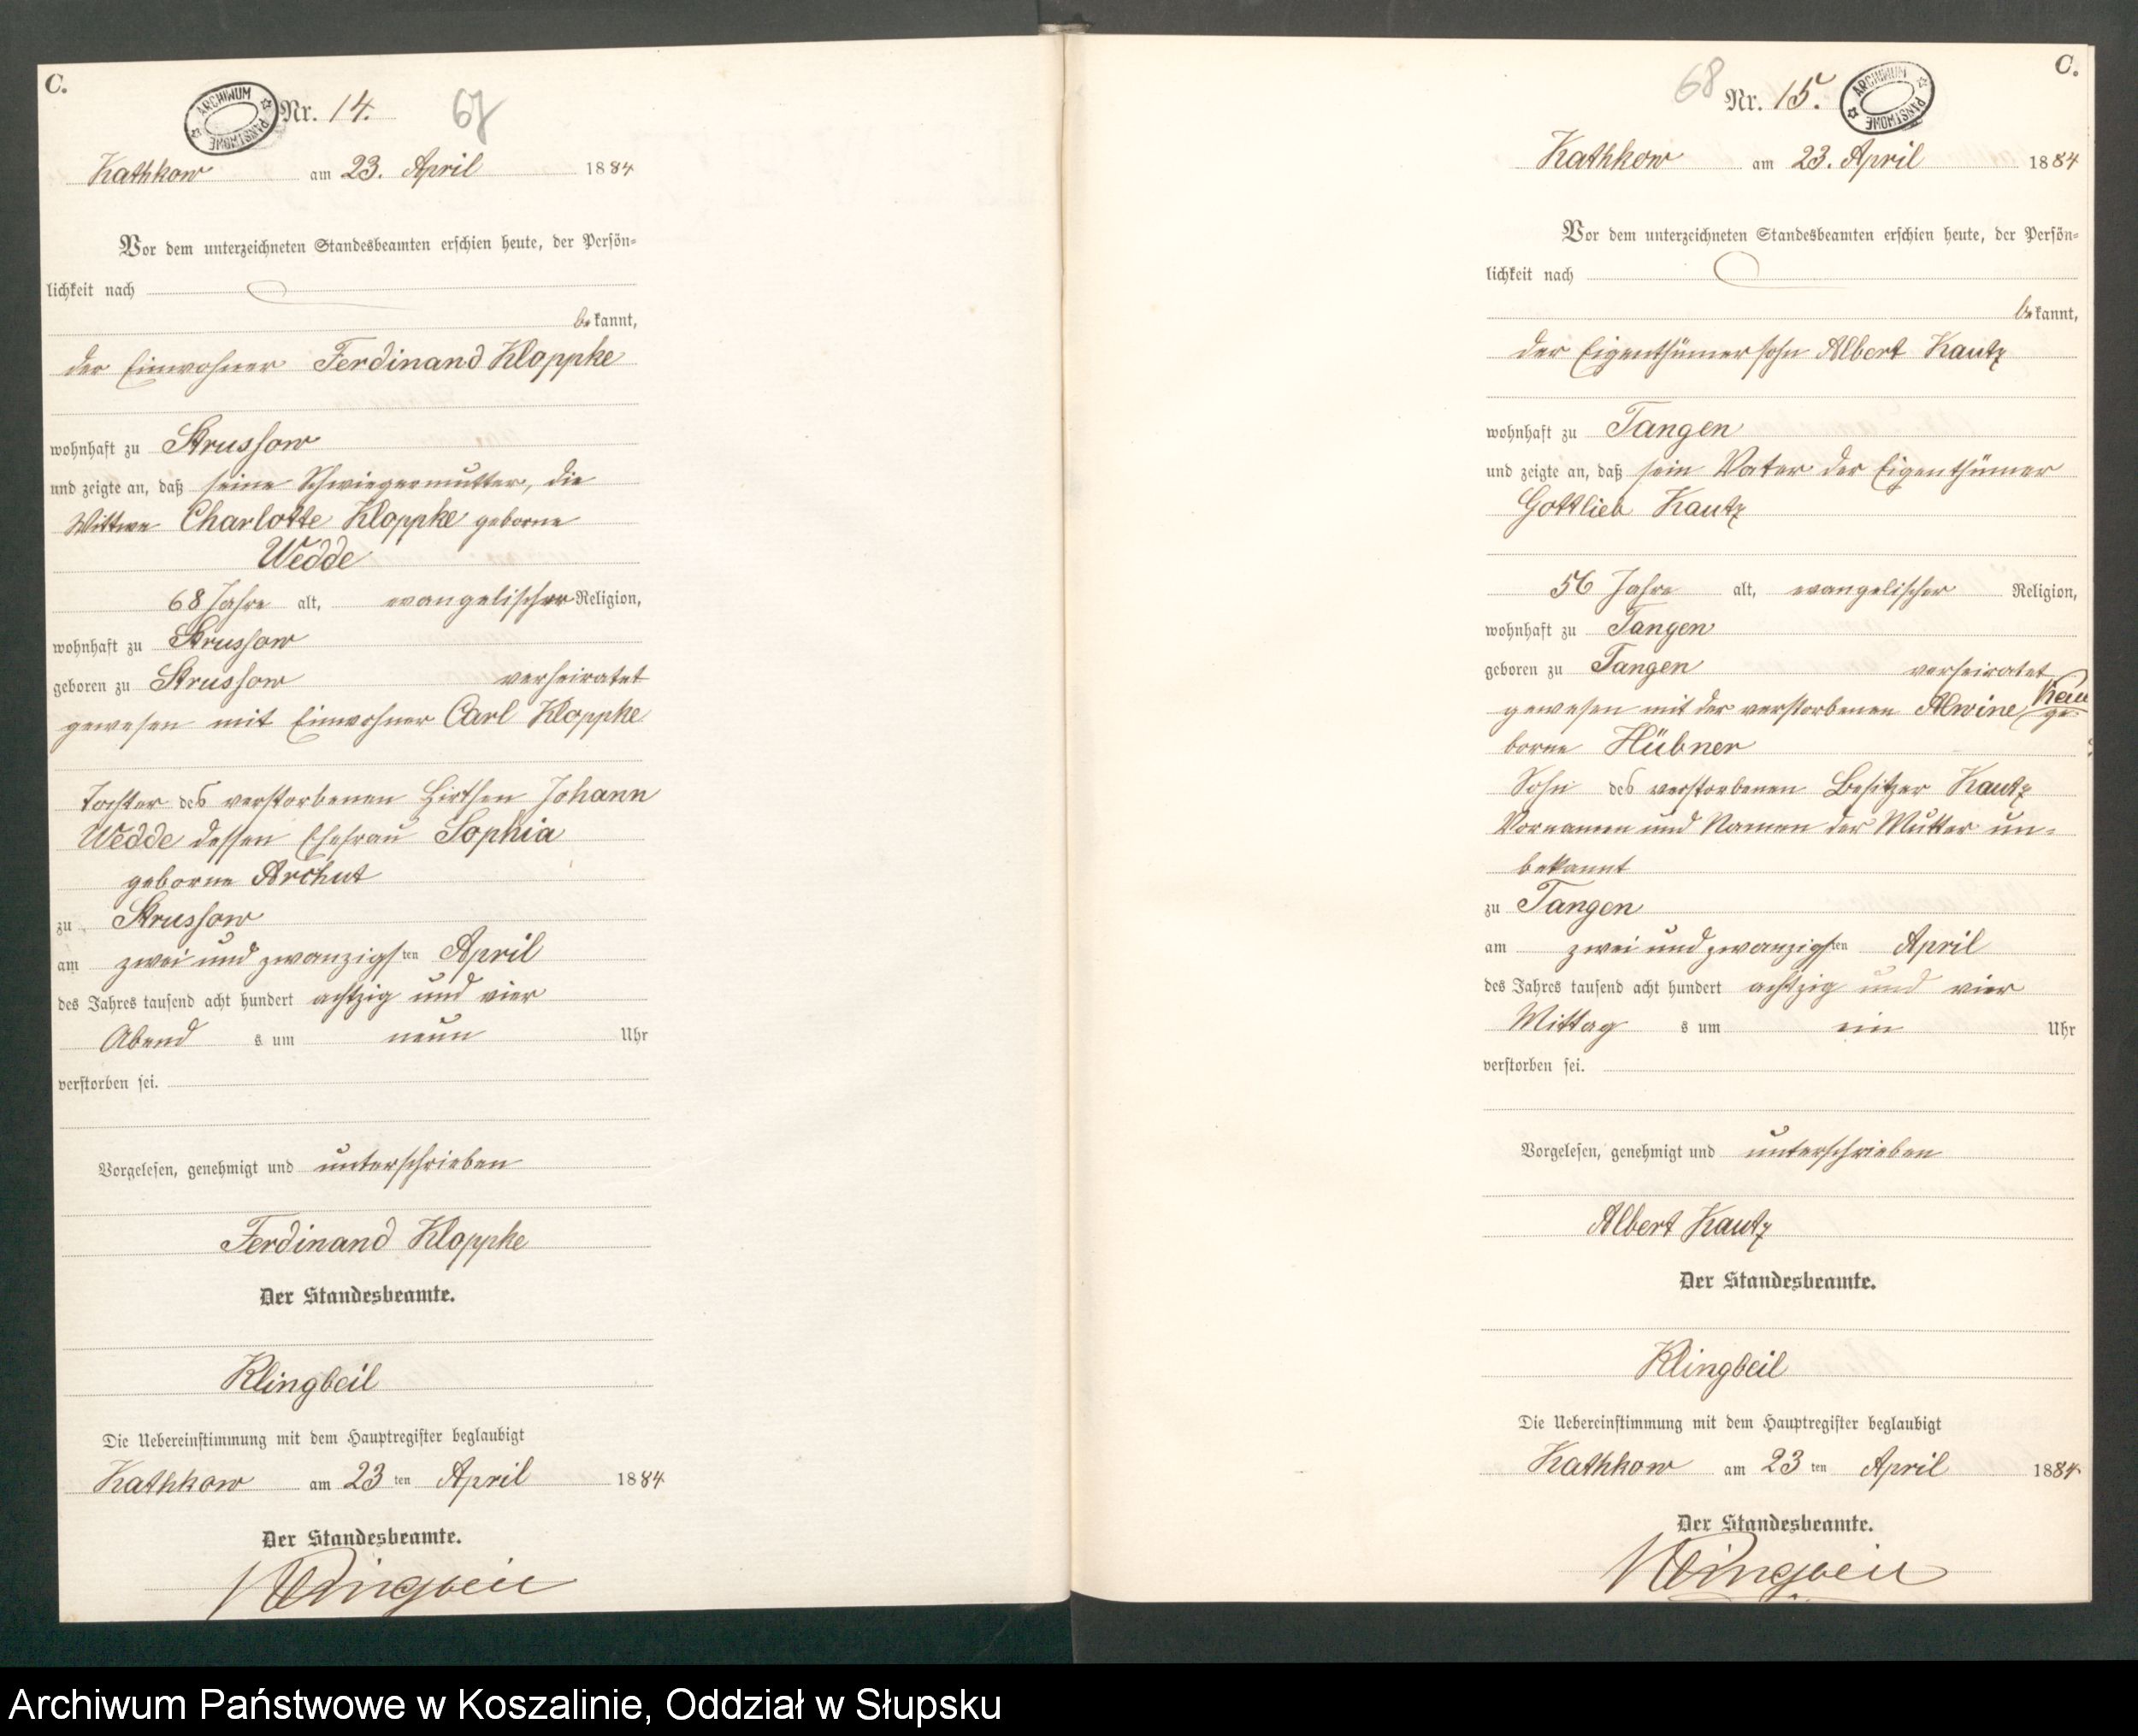 C.
ARCHIWUM PAŃSTWOWE
Nr. 14.
67
Kathkow am 23. April 1884
Vor dem unterzeichneten Standesbeamten erschien heute, der Persön-
lichkeit nach
bekannt,
der Einwohner Ferdinand Kloppke
wohnhaft zu Strussow
und zeigte an, daß seine Schwiegermutter, die
Wittwe Charlotte Kloppke geborne
Wedde
68 Jahre alt, evangelischer Religion,
wohnhaft zu Strussow
geboren zu Strussow verheiratet
gewesen mit Einwohner Carl Kloppke
Tochter des verstorbenen Hirthen Johann
Wedde dessen Ehefrau Sophia
geborne Archut
zu Strussow
am zwei und zwanzigsten April
des Jahres tausend acht hundert achtzig und vier
Abend s um neun Uhr
verstorben sei.
Vorgelesen, genehmigt und unterschrieben
Ferdinand Kloppke
Der Standesbeamte.
Klingbeil
Die Uebereinstimmung mit dem Hauptregister beglaubigt
Kathkow am 23 ten April 1884
Der Standesbeamte.
Klingbeil
C.
68
Nr. 15.
ARCHIWUM PAŃSTWOWE
Kathkow am 23. April 1884
Vor dem unterzeichneten Standesbeamten erschien heute, der Persön-
lichkeit nach
bekannt,
der Eigenthümersohn Albert Kautz
wohnhaft zu Tangen
und zeigte an, daß sein Vater der Eigenthümer
Gottlieb Kautz
56 Jahre alt, evangelischer Religion,
wohnhaft zu Tangen
geboren zu Tangen verheiratet
gewesen mit der verstorbenen Alwine ge-
borne Hübner
Sohn des verstorbenen Besitzer Kautz
Vornamen und Namen der Mutter un-
bekannt
zu Tangen
am zwei und zwanzigsten April
des Jahres tausend acht hundert achtzig und vier
Mittag s um ein Uhr
verstorben sei.
Vorgelesen, genehmigt und unterschrieben
Albert Kautz
Der Standesbeamte.
Klingbeil
Die Uebereinstimmung mit dem Hauptregister beglaubigt
Kathkow am 23 ten April 1884
Der Standesbeamte.
Klingbeil
Archiwum Państwowe w Koszalinie, Oddział w Słupsku